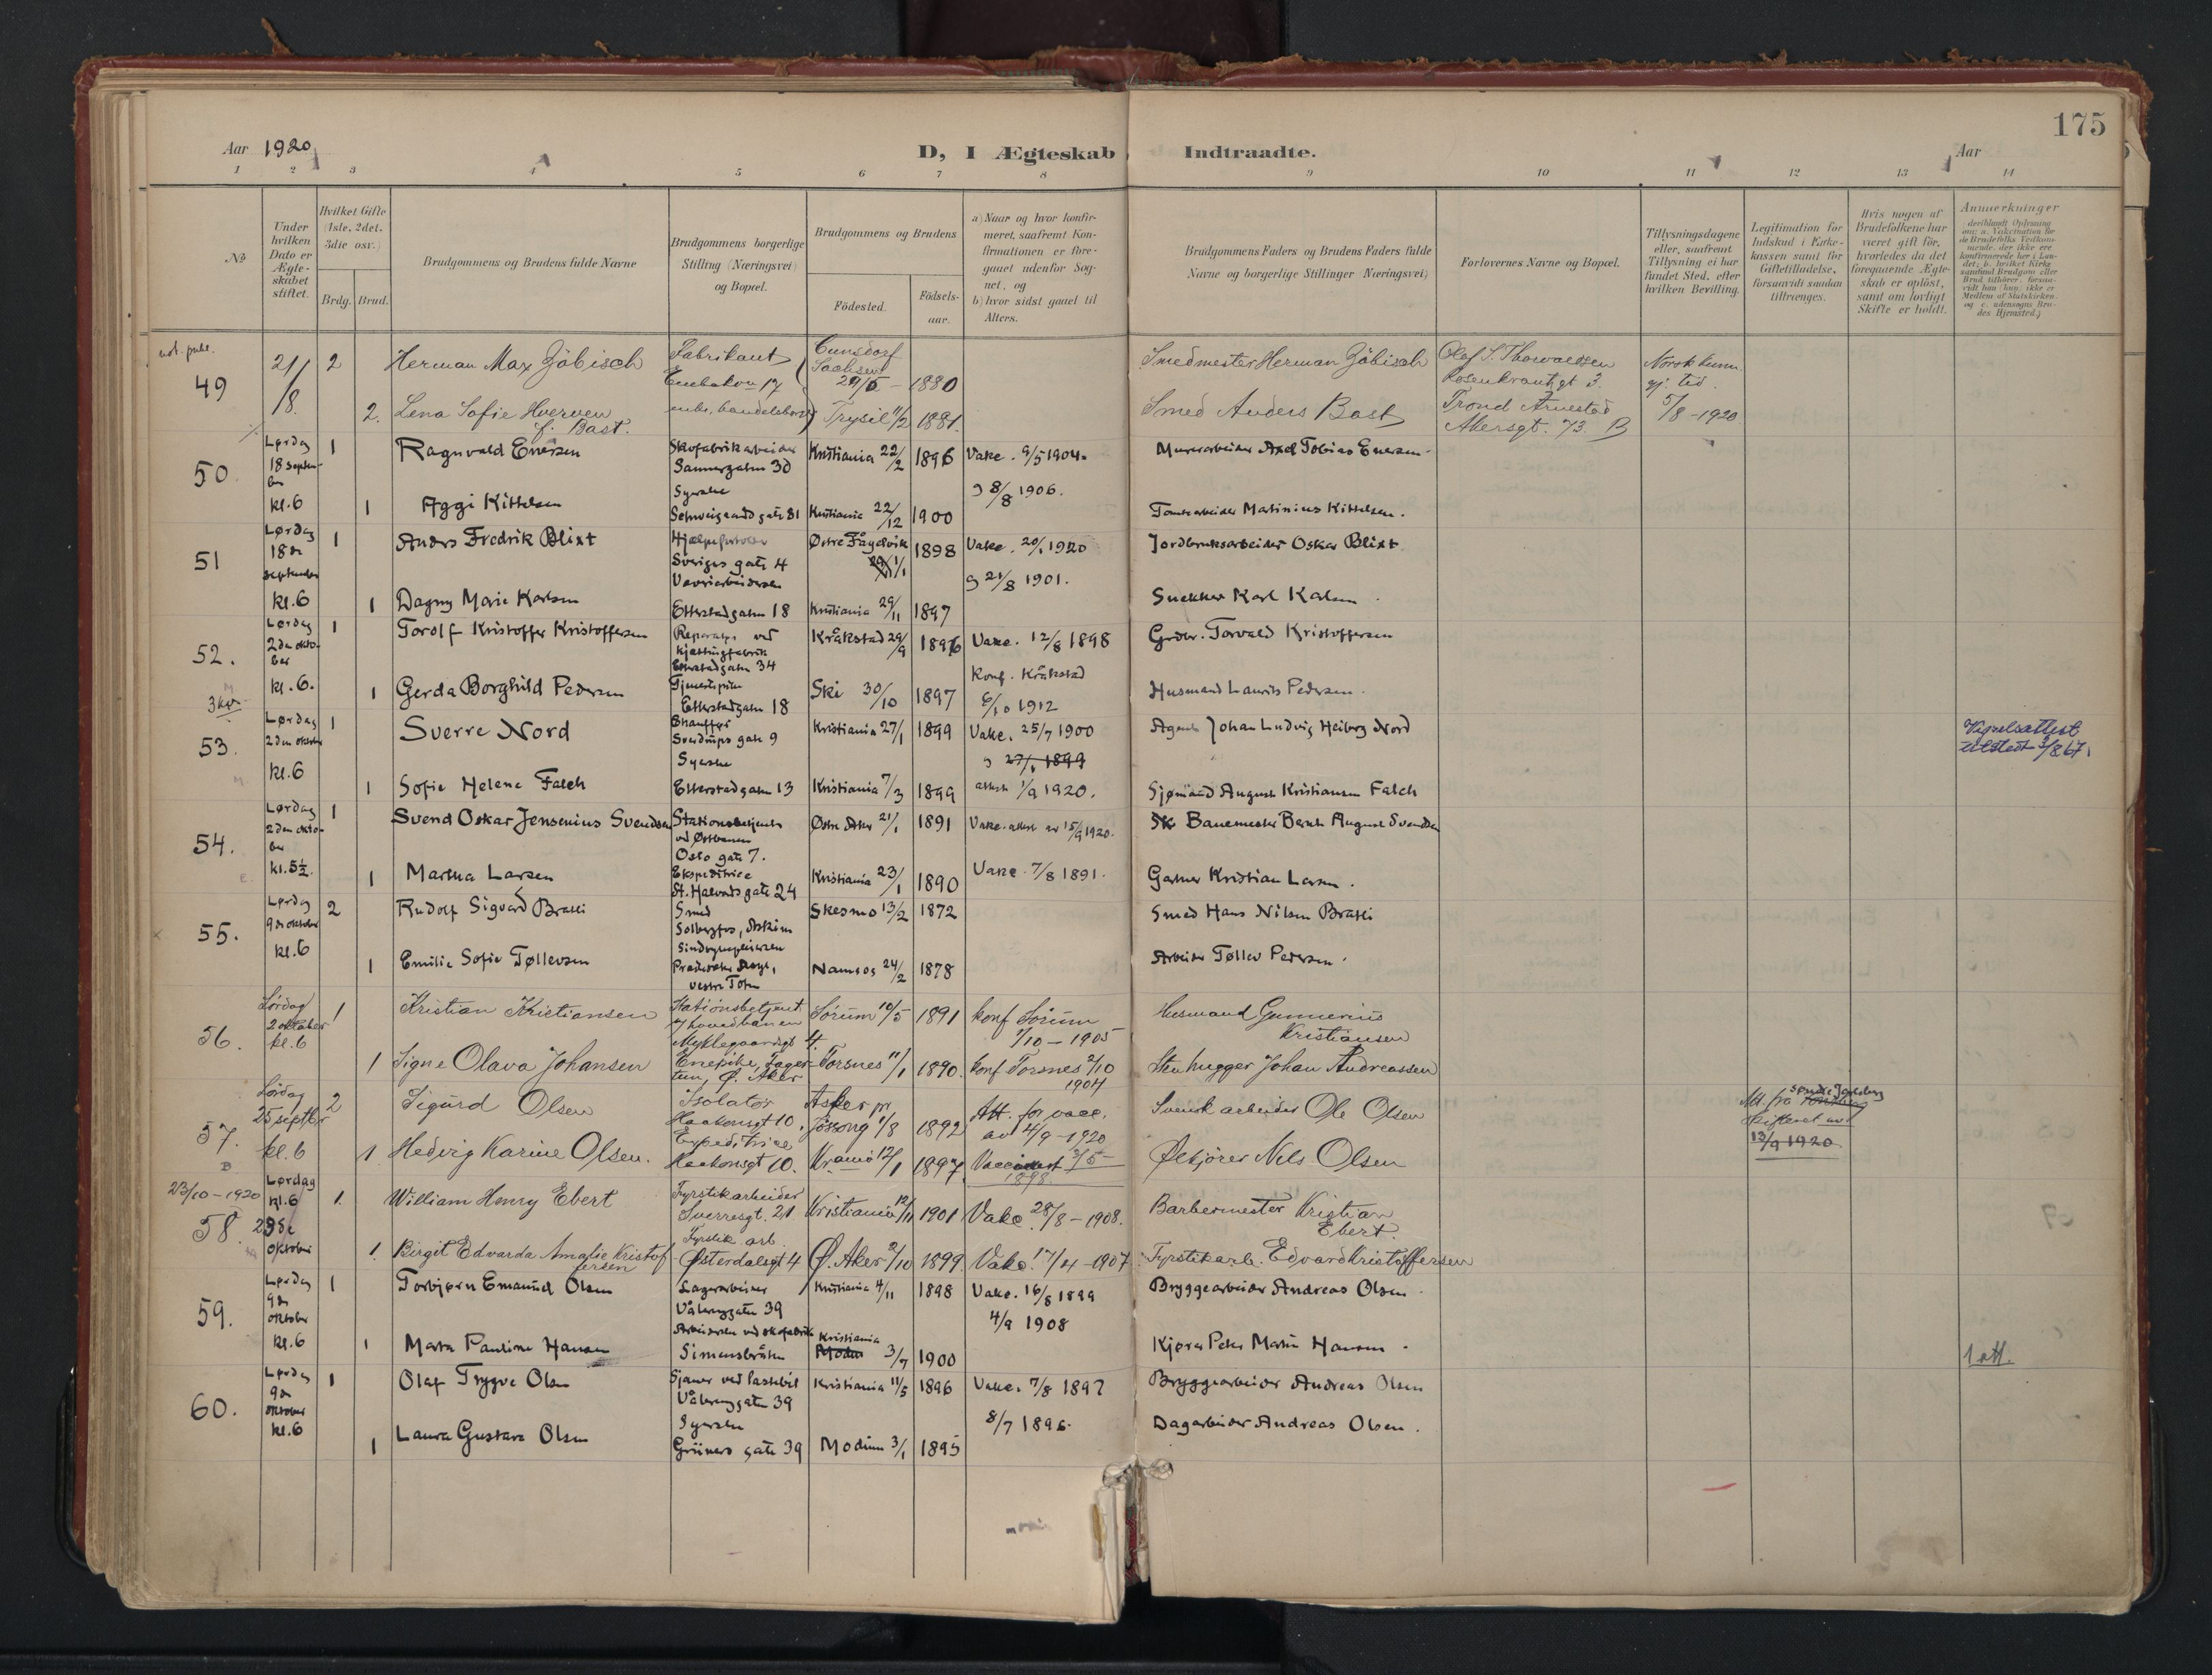 175
Aar 1920
D, I Ægteskab Indtraadte.
Aar
1 2 3 4 5 6 7 8 9 10 11 12 13 14
No.
Under hvilken Dato er Ægte-skabet stiftet.
Hvilket Gifte (1ste, 2det, 3die osv.)
Brdg. Brud.
Brudgommens og Brudens fulde Navne
Brudgommens borgerlige Stilling (Næringsvei) og Bopæl.
Brudgommens og Brudens
Fødested.
Fødsels-aar.
a) Naar og hvor konfir-meret, saafremt Kon-firmationen er fore-gaaet udenfor Sog-net, og
b) hvor sidst gaaet til Alters.
Brudgommens Faders og Brudens Faders fulde Navne og borgerlige Stillinger (Næringsvei)
Forlovernes Navne og Bopæl.
Tillysningsdagene eller, saafremt Tillysning ei har fundet Sted, efter hvilken Bevilling.
Legitimation for Indskud i Enke-kassen samt for Giftetilladelse, forsaavidt saadan tiltrænges.
Hvis nogen af Brudefolkene har været gift før, hvorledes da det foregaaende Ægte-skab er opløst, samt om lovligt Skifte er holdt.
Anmerkninger
49
21/8. 2 Herman Max Zöbisch Fabrikant Cunsdorf Sachsen 29/5 - 1880 Smedmester Herman Zöbisch Olaf S. Thorvaldsen Rosenkrantzgt 3. Norsk kunn. gj. tid.
2. Lena Sofie Hverven f. Bast. enke, Trysil 11/2 1881. Smed Anders Bast Trond Arnestad Akersgt. 73. B 5/8-1920
50. Lørdag 18 septem-ber kl. 6
1 Ragnvald Enersen Skofabrikarbeider Sannergaten 3d Kristiania 22/2 1896 Vakc. 9/5 1904. Murerarbeider Axel Tobias Enersen
1 Aggi Kittelsen Syerske Schweigaards gate 81 Kristiania 22/12 1900 8/8 1906. Tomtearbeider Martinius Kittelsen.
51 Lørdag 18de september kl. 6
1 Anders Fredrik Blixt Sveriges gate 4 Østre Fågelvik 1/1 1898 Vakc. 20/1 1920 Jordbruksarbeider Oskar Blixt
1 Dagny Marie Karlsen Væveriarbeiderske Etterstadgaten 18 Kristiania 29/11 1897 21/8 1901. Snekker Karl Karlsen
52. Lørdag 2den okto-ber kl. 6.
1 Torolf Kristoffer Kristoffersen Reparatør ved kjættingfabrik Etterstadgaten 34 Kråkstad 29/9 1896 Vakc. 12/8 1898 Grdbr. Torvald Kristoffersen
1 Gerda Borghild Pedersen Tjenestepike Etterstadgaten 18 Ski 30/10 1897 Konf. Kråkstad 6/10 1912 Husmand Laurits Pedersen.
53. Lørdag 2den oktober kl. 6
1 Sverre Nord Chauffør Sverdrups gate 9 Kristiania 27/1 1899 Vakc. 25/7 1900 Agent Johan Ludvig Heiberg Nord Vigselsattest utstedt 3/8 67.
1 Sofie Helene Falch Syerske Etterstadgaten 13 Kristiania 7/3 1899 27/1 1899 attest 1/9 1920. Sjømand August Kristiansen Falch
54. Lørdag 2den okto-ber kl. 5½.
1 Svend Oskar Jensenius Svendsen Stationsbetjent ved Østbanen Oslo gate 7. Østre Aker 21/1 1891 Vakc. attest av 15/9 1920. Banemester Bernt August Svendsen
1 Martha Larsen Ekspeditrice St. Halvards gate 24 Kristiania 23/1 1890 Vakc. 7/8 1891. Gartner Kristian Larsen.
55. Lørdag 9de oktober kl. 6
2 Rudolf Sigvard Bratli Smed Solbergfos, Askim Skesmo 13/2 1872 Smed Hans Nilsen Bratli
1 Emilie Sofie Tøllevsen Sindssykepleierske Vestre Toten Namsos 24/2 1878 Arbeider Tøllev Pedersen.
56. Lördag 2 oktober kl. 6
1 Kristian Kristiansen Stationsbetjent v/ hovedbanen Myklegaardsgt 4. Sörum 10/5 1891 Konf Sörum 1/10 - 1905 Husmand Gunnerius Kristiansen
1 Signe Olava Johansen Enepike, Ø. Aker Torsnes 11/1 1890. Konf Torsnes 2/10 1904 Stenhugger Johan Andreassen
57. Lördag 25 septbr kl. 6
2 Sigurd Olsen Isolatör Haakonsgt 10. 1/8 1892 Att. for vacc. av 4/9 - 1920 Svensk arbeider Ole Olsen Att. fra søndre Jarlsberg skifteret av 13/9 1920.
1 Hedvig Karine Olsen. Expeditrice Haakonsgt 10. Kr.ania 12/1 1897. Vaccinert 3/5 - 1898. Ølkjörer Nels Olsen
23/10-1920 58. Lørdag kl. 6 23de Oktober
1. William Henry Ebert Fyrstikarbeider Sverresgt. 21 Kristiania 12/11 1901 Vakc. 28/8 - 1908. Barbermester Kristian Ebert.
1. Birgit Edvarda Amalie Kristof-fersen Fyrstik arb. Østerdalsgt 4 Ø. Aker 2/10 1899. Vakc. 17/4 - 1907 Fyrstikarb. Edvard Kristoffersen
59. Lørdag 9de oktober kl. 6
1 Torbjørn Emanuel Olsen Lagerarbeider Vålerenggaten 39 Kristiania 4/11 1898 Vakc. 16/8 1899 Bryggearbeider Andreas Olsen
1 Marta Pauline Hansen Arbeiderske ved skofabrik Simensbråten Kristiania Modum 3/7 1900 4/9 1908 Kjører Peter Martin Hansen. 1 att.
60. Lørdag 9de oktober kl. 6
1 Olaf Trygve Olsen Sjauer ved lastebil Vålerenggaten 39 Kristiania 11/5 1896 Vakc. 7/8 1897 Bryggearbeider Andreas Olsen
1 Laura Gustava Olsen Syerske Grüners gate 39 Modum 3/1 1895 8/7 1896. Dagarbeider Andreas Olsen.